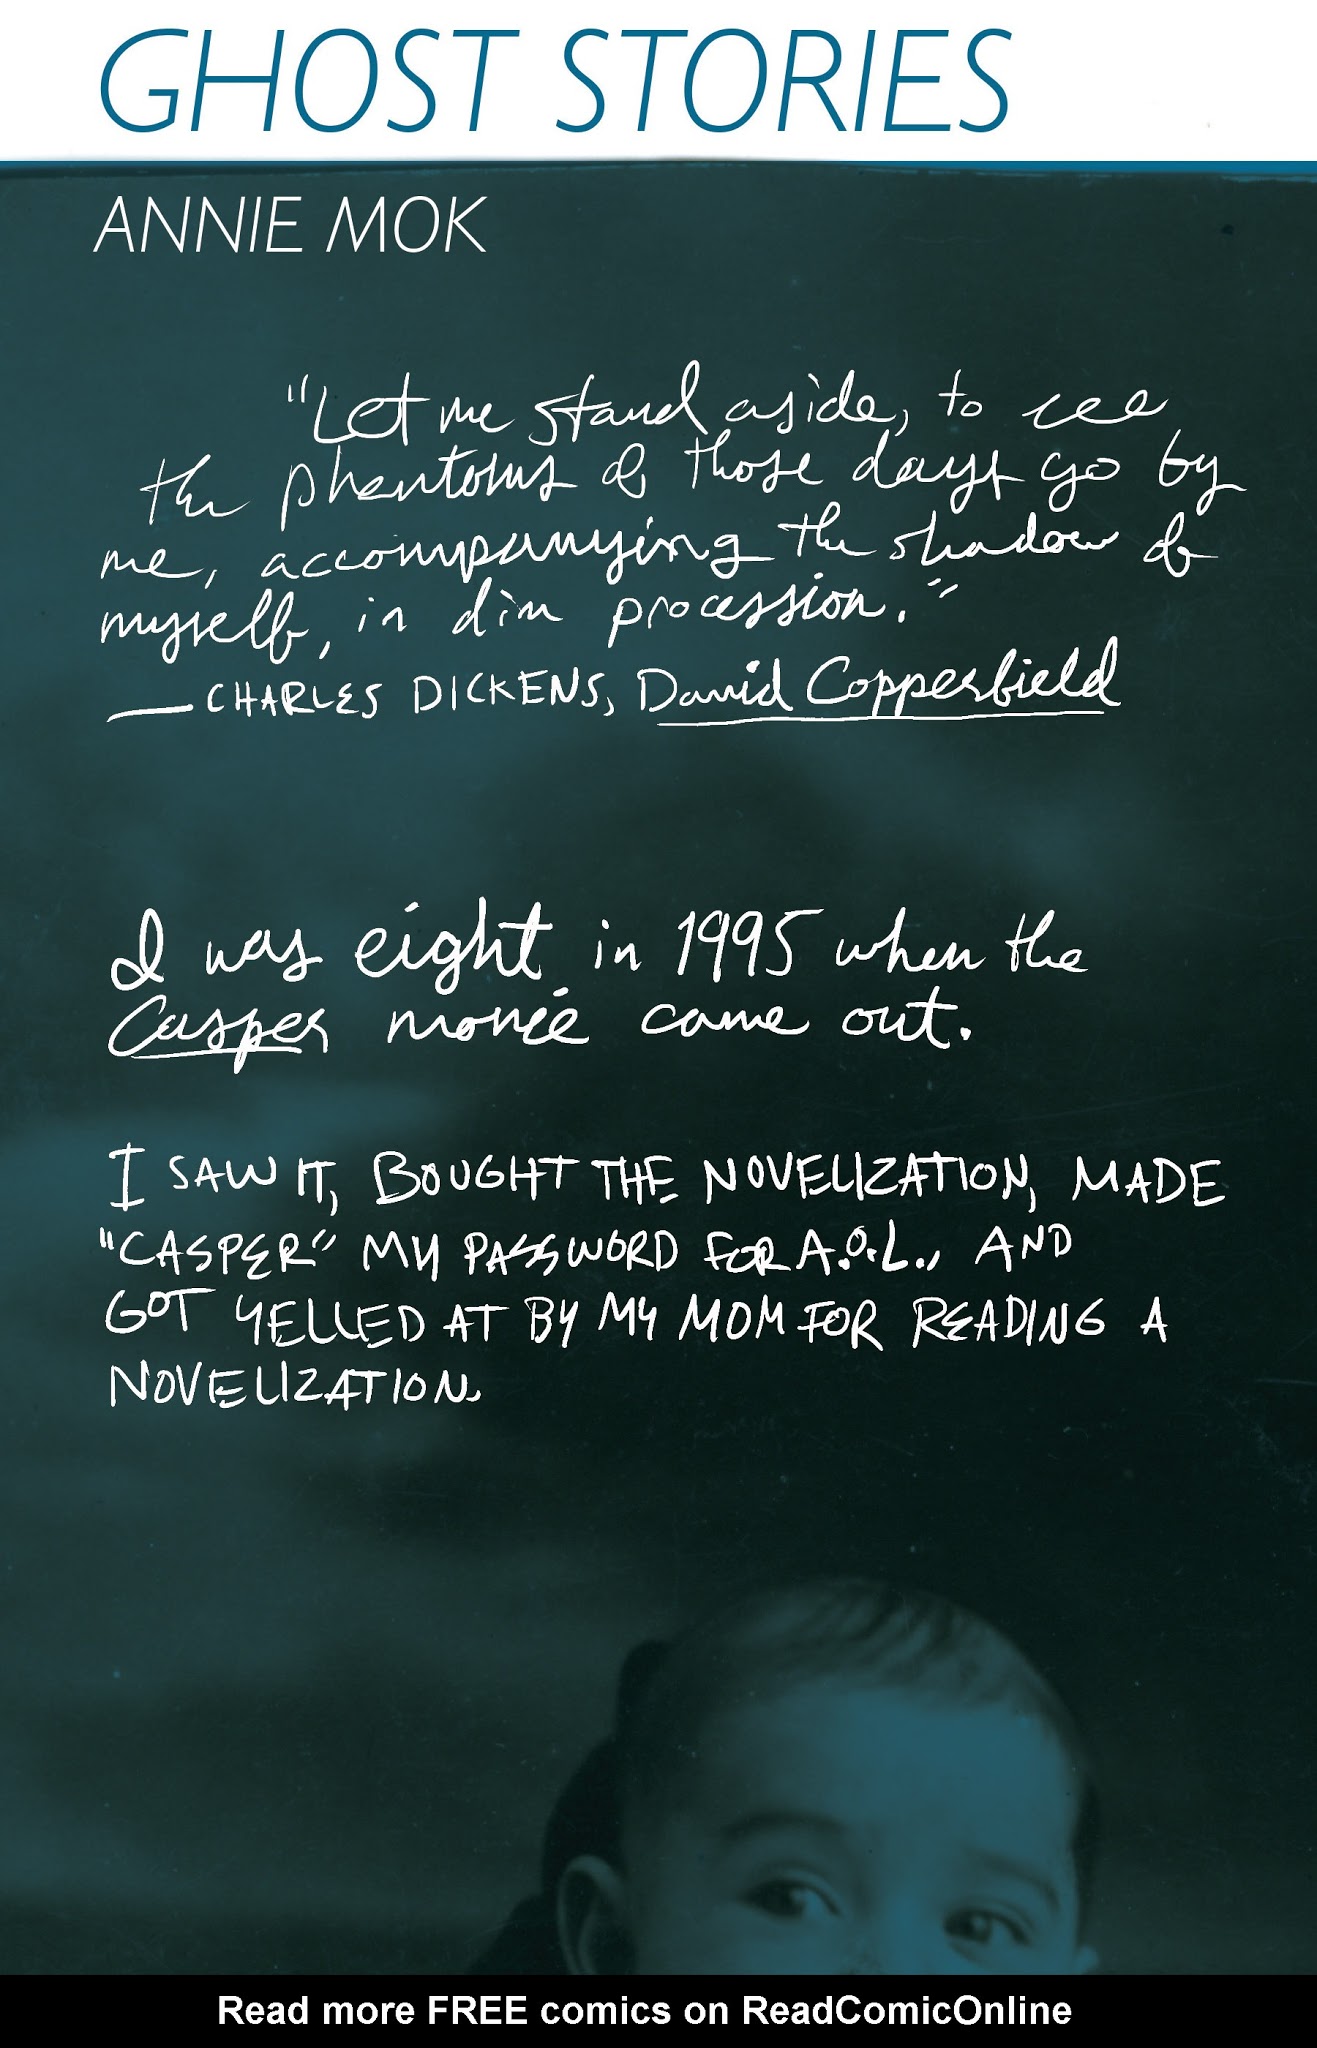 GHOST STORIES
ANNIE MOK
"Let me stand aside, to see
the phantoms of those days go by
me, accompanying the shadow of
myself, in dim procession."
— CHARLES DICKENS, David Copperfield
I was eight in 1995 when the
Casper movie came out.
I SAW IT, BOUGHT THE NOVELIZATION, MADE
"CASPER" MY PASSWORD FOR A.O.L., AND
GOT YELLED AT BY MY MOM FOR READING A
NOVELIZATION.
Read more FREE comics on ReadComicOnline